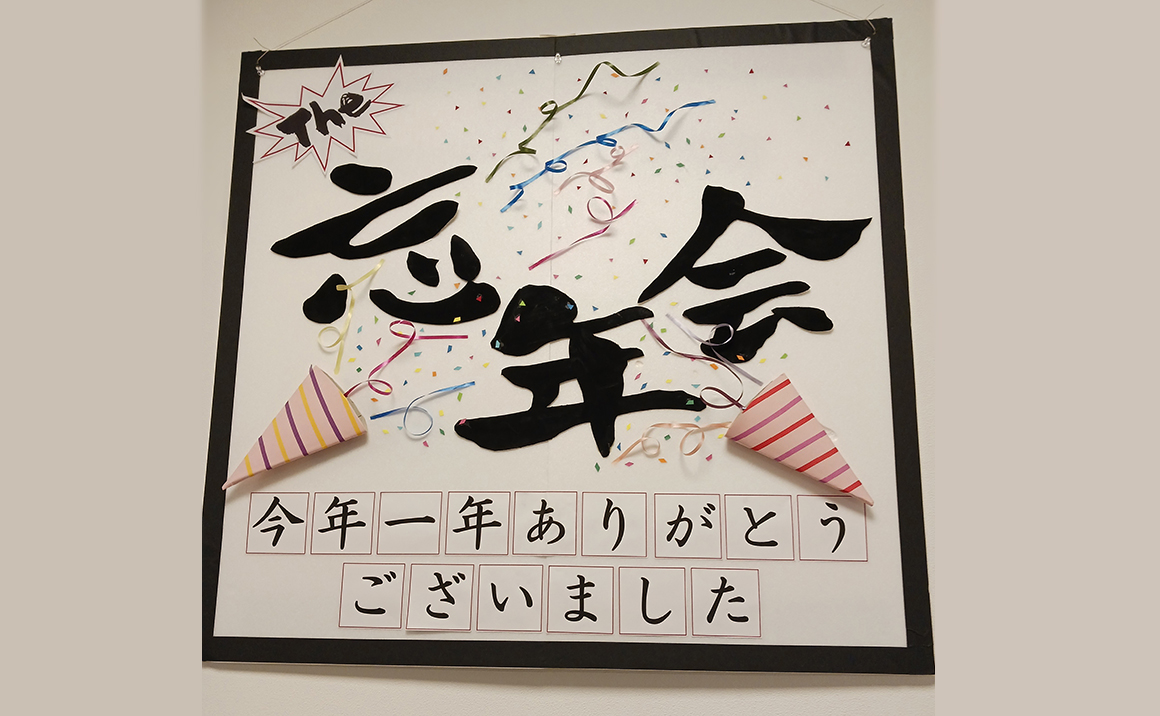 The
忘年会
今年一年ありがとう
ございました